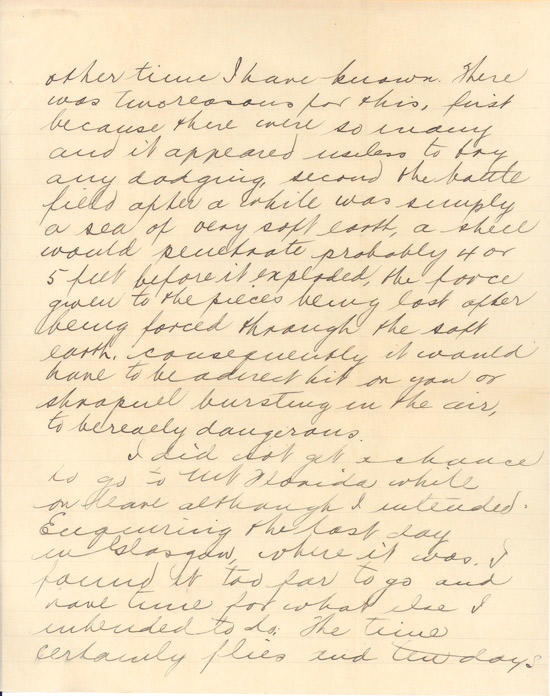 other time I have known. There
was two reasons for this, first
because there were so many
and it appeared useless to try
any dodging, second the battle
field after a while was simply
a sea of very soft earth, a shell
would penetrate probably 4 or
5 feet before it exploded, the force
given to the pieces being lost after
being forced through the soft
earth. consequently it would
have to be a direct hit on you or
shrapnel bursting in the air,
to be really dangerous.
I did not get a chance
to go to Mt Florida while
on leave although I intended.
Enquiring the last day
in Glasgow, where it was. I
found it too far to go and
have time for what else I
intended to do. The time
certainly flies and ten days